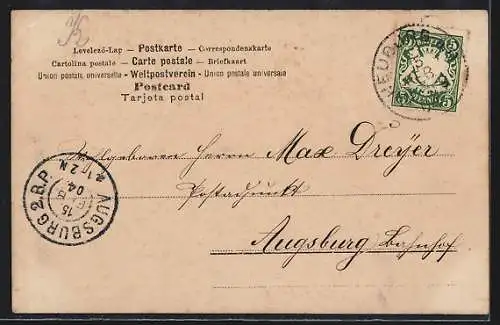 Levelező-Lap — Postkarte — Correspondenzkarte
Cartolina postale — Carte postale — Briefkaart
Union postale universelle - Weltpostverein - Union postale universale
Postcard
Tarjeta postal
5 5
PFENNIG
NEUBURG
Wohlgeboren Herrn Max Dreyer
Postadjunkt
Augsburg Bahnhof
AUGSBURG 2. B.P.
15
04
1-2 N